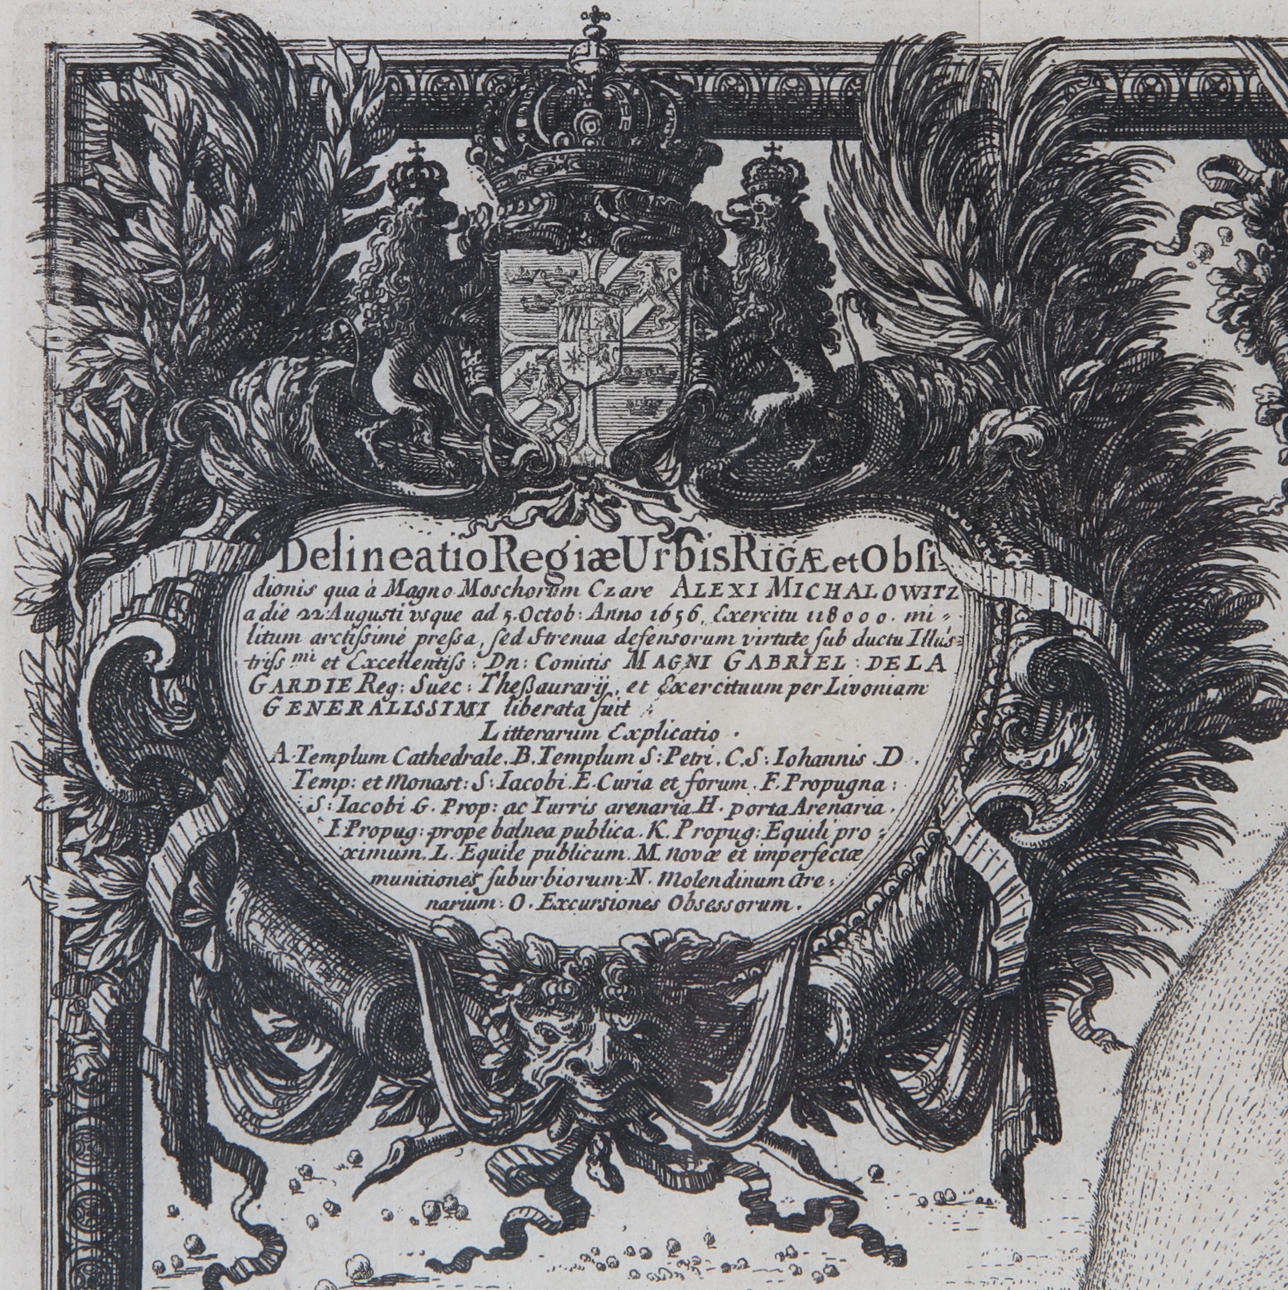 Delineatio Regiæ Urbis RIGÆ et Obsi
dionis qua à Magno Moschorum Czare ALEXI MICHALOWITZ
a die 22 Augusti vsque ad 5. Octob: Anno 1656, Exercitu 118000. mi-
litum arctissimè pressa, sed Strenua defensorum virtute sub ductu Illus-
triss.mi et Excellentiss: Dn: Comitis MAGNI GABRIEL: DE LA
GARDIE Reg: Suec: Theßaurarij, et Exercituum per Livoniam
GENERALISSIMI liberata fuit.
Litterarum Explicatio.
A. Templum Cathedrale. B. Templum S: Petri. C. S: Iohannis. D.
Temp: et Monast: S: Iacobi. E. Curia et forum. F. Propugna:
S: Iacobi G. Prop: ac Turris arenaria. H. porta Arenaria.
I. Propug: prope balnea publica. K. Propug: Equili pro:
ximum. L. Equile publicum. M. novæ et imperfectæ
munitiones suburbiorum. N. Molendinum Are:
narium. O. Excursiones Obsessorum.